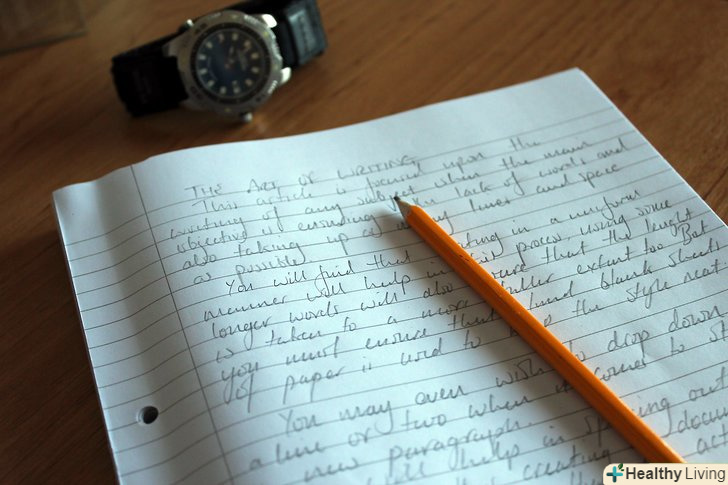 THE ART OF WRITING
This article is focused upon the
writing of any subject when the main
objective is ensuring lack of words and
also taking up as many lines and space
as possible
You will find that writing in a uniform
manner will help in this process, using some
longer words will also ensure that the length
is taken to a more fuller extent too. But
you must ensure that lined blank sheets
of paper is used to keep the style neat.
You may even wish to drop down
a line or two when it comes to
new paragraph.
help in spacing out
creating
Healthy Living